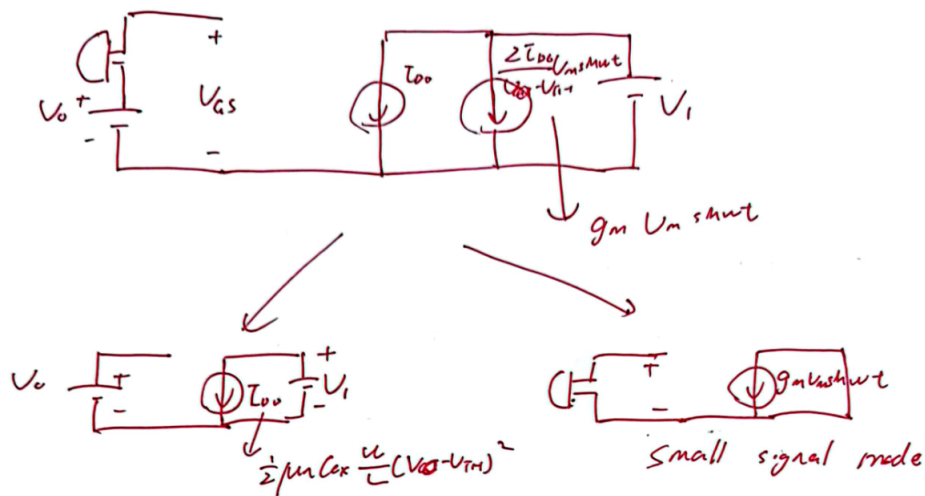 +
V₀ + -
V_GS
-
I_D0
2I_D0 / V_GS-V_TH V_m sinωt
V₁
g_m V_m sinωt
V₀ + -
I_D0
+ V₁ -
½ μn Cox W/L (V_GS-V_TH)²
+
-
g_m V_m sinωt
small signal mode